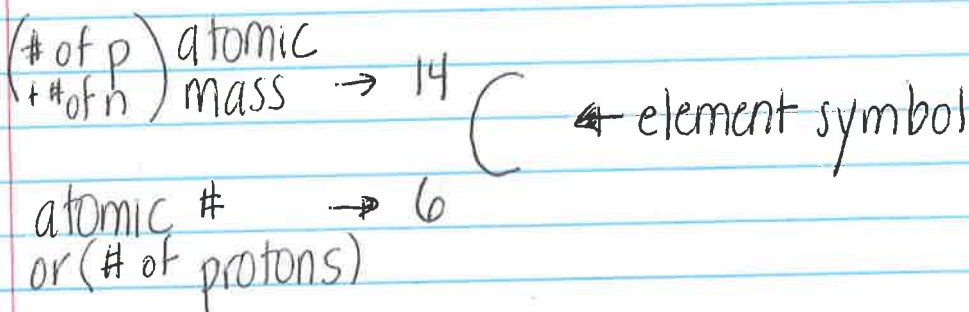 (# of p atomic
+ # of n) mass → 14
C ← element symbol
atomic # → 6
or (# of protons)